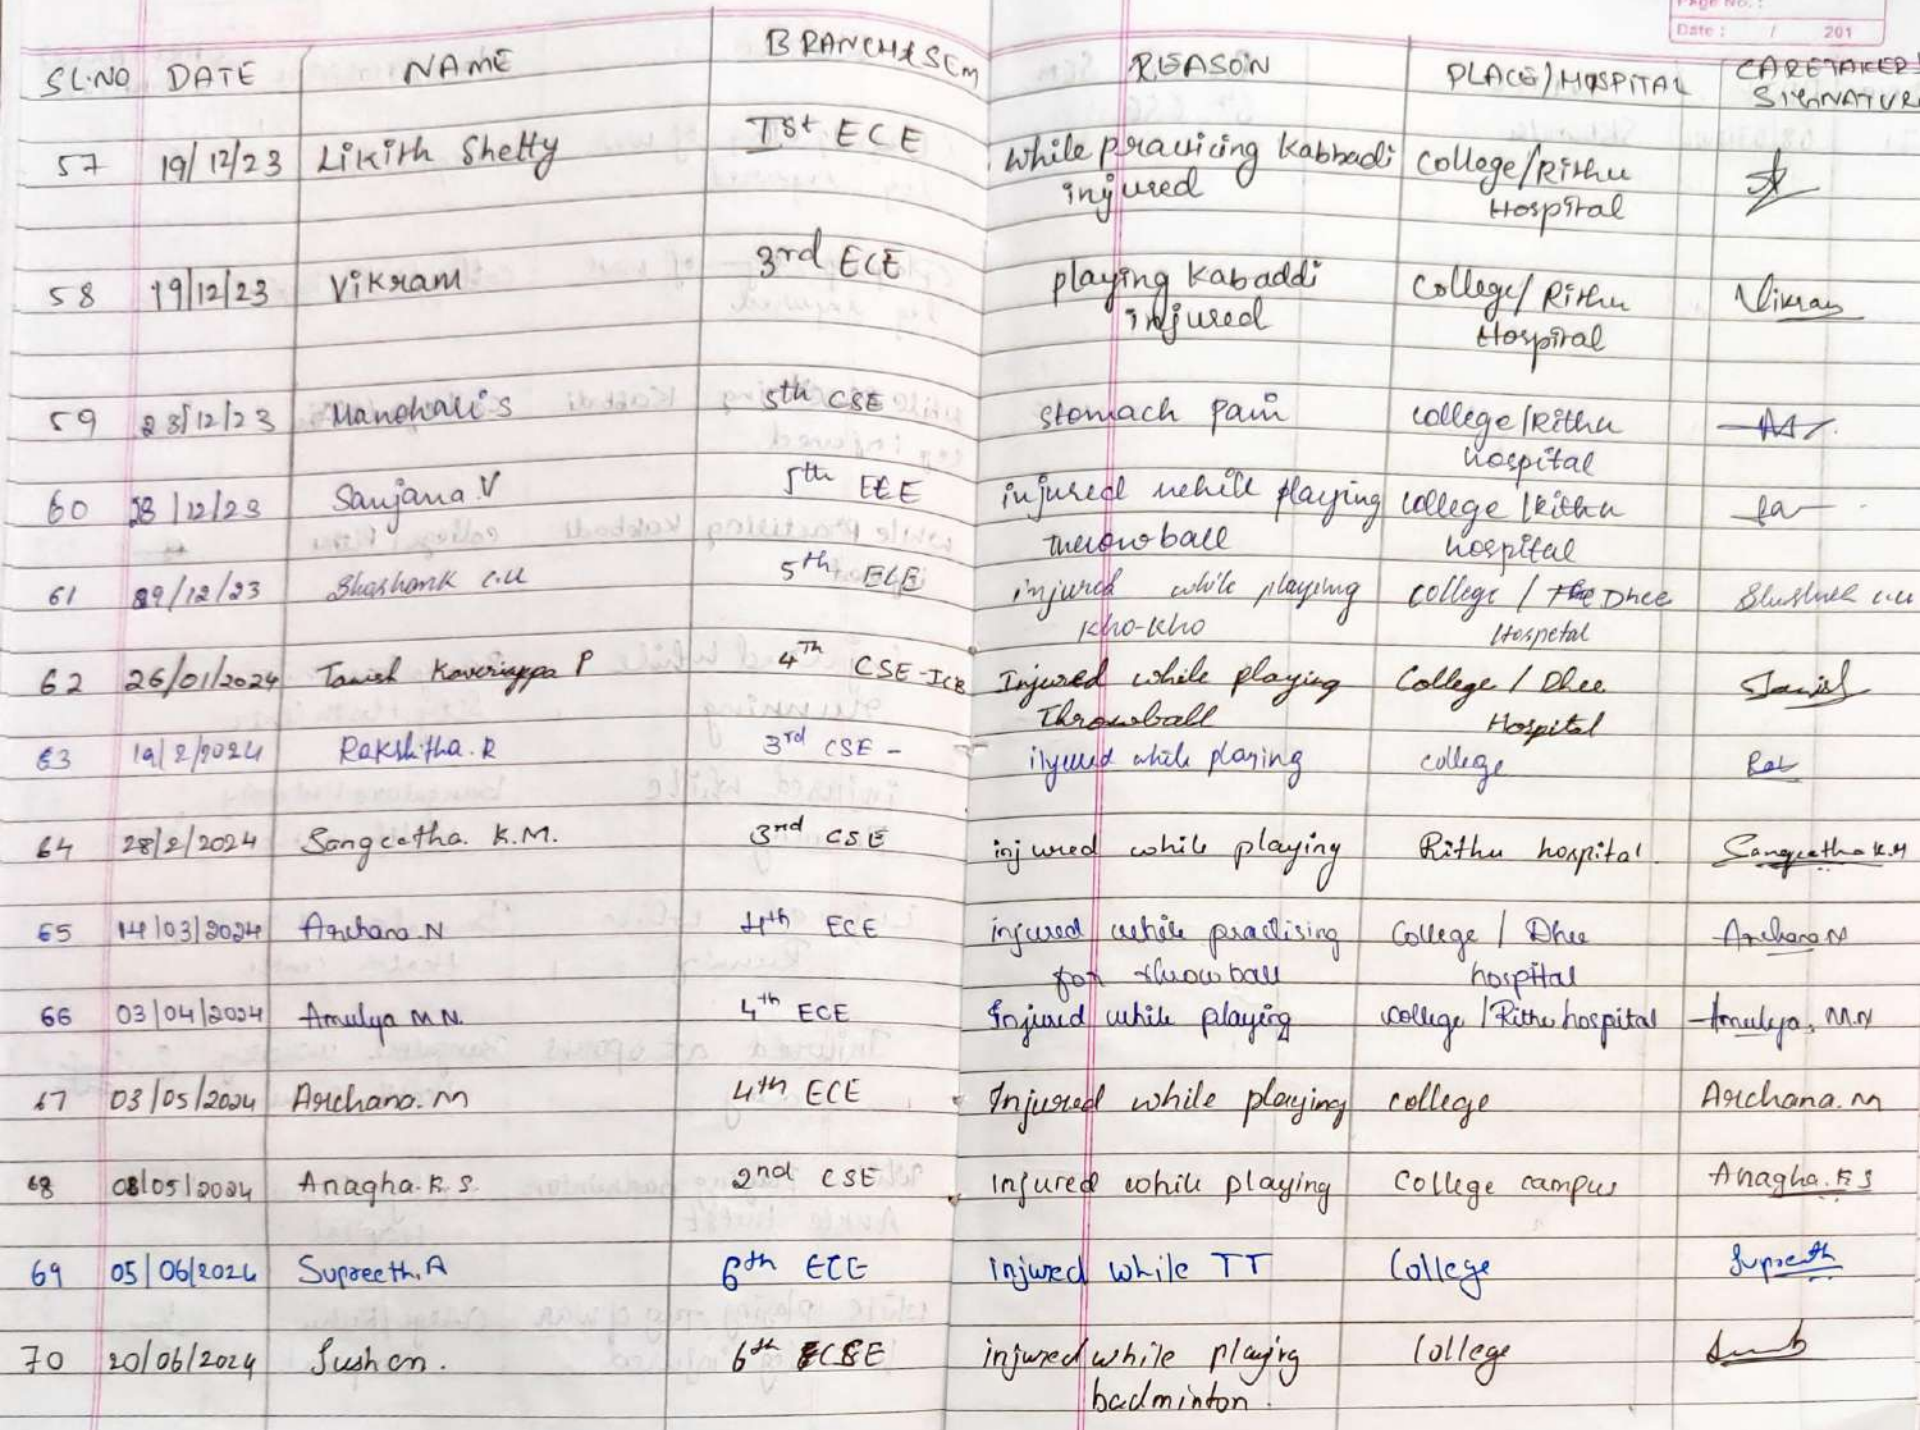 Page No.:
Date: / 201
SL.NO DATE NAME BRANCH & SEM REASON PLACE/HOSPITAL CARETAKER'S
SIGNATURE
57 19/12/23 Likith Shetty Ist ECE while pravicing Kabbadi College/Rithu
injured Hospital
58 19/12/23 Vikram 3rd ECE playing Kabaddi College/Rithu Vikram
injured Hospital
59 23/12/23 S 5th CSE stomach pain college/Rithu
hospital
60 28/12/23 Sanjana V 5th ECE injured while playing college/Rithu
throwball hospital
61 29/12/23 Shashank C.U 5th ECE injured while playing college / Dhee Shashank C.U
Kho-Kho Hospetal
62 26/01/2024 Tanish Kaveriappa P 4Th CSE-ICB Injured while playing College / Dhee Tanish
Throwball Hospital
63 19/2/2024 Rakshitha.R 3rd CSE - ijured while playing college
64 28/2/2024 Sangeetha. K.M. 3rd CSE injured while playing Rithu hospital. Sangeetha K.M
65 14/03/2024 Archana.N 4th ECE injured while practising College / Dhee Archana N
for throwball hospital
66 03/04/2024 Amulya M.N. 4th ECE Injured while playing college/Rithu hospital Amulya. M.N
67 03/05/2024 Archana.M 4th ECE Injured while playing college Archana.M
68 08/05/2024 Anagha.R.S. 2nd CSE Injured while playing College campus Anagha.R S
69 05/06/2024 Supreeth.A 6th ECE injured while TT College Supreeth
70 20/06/2024 6th injured while playing College
badminton.